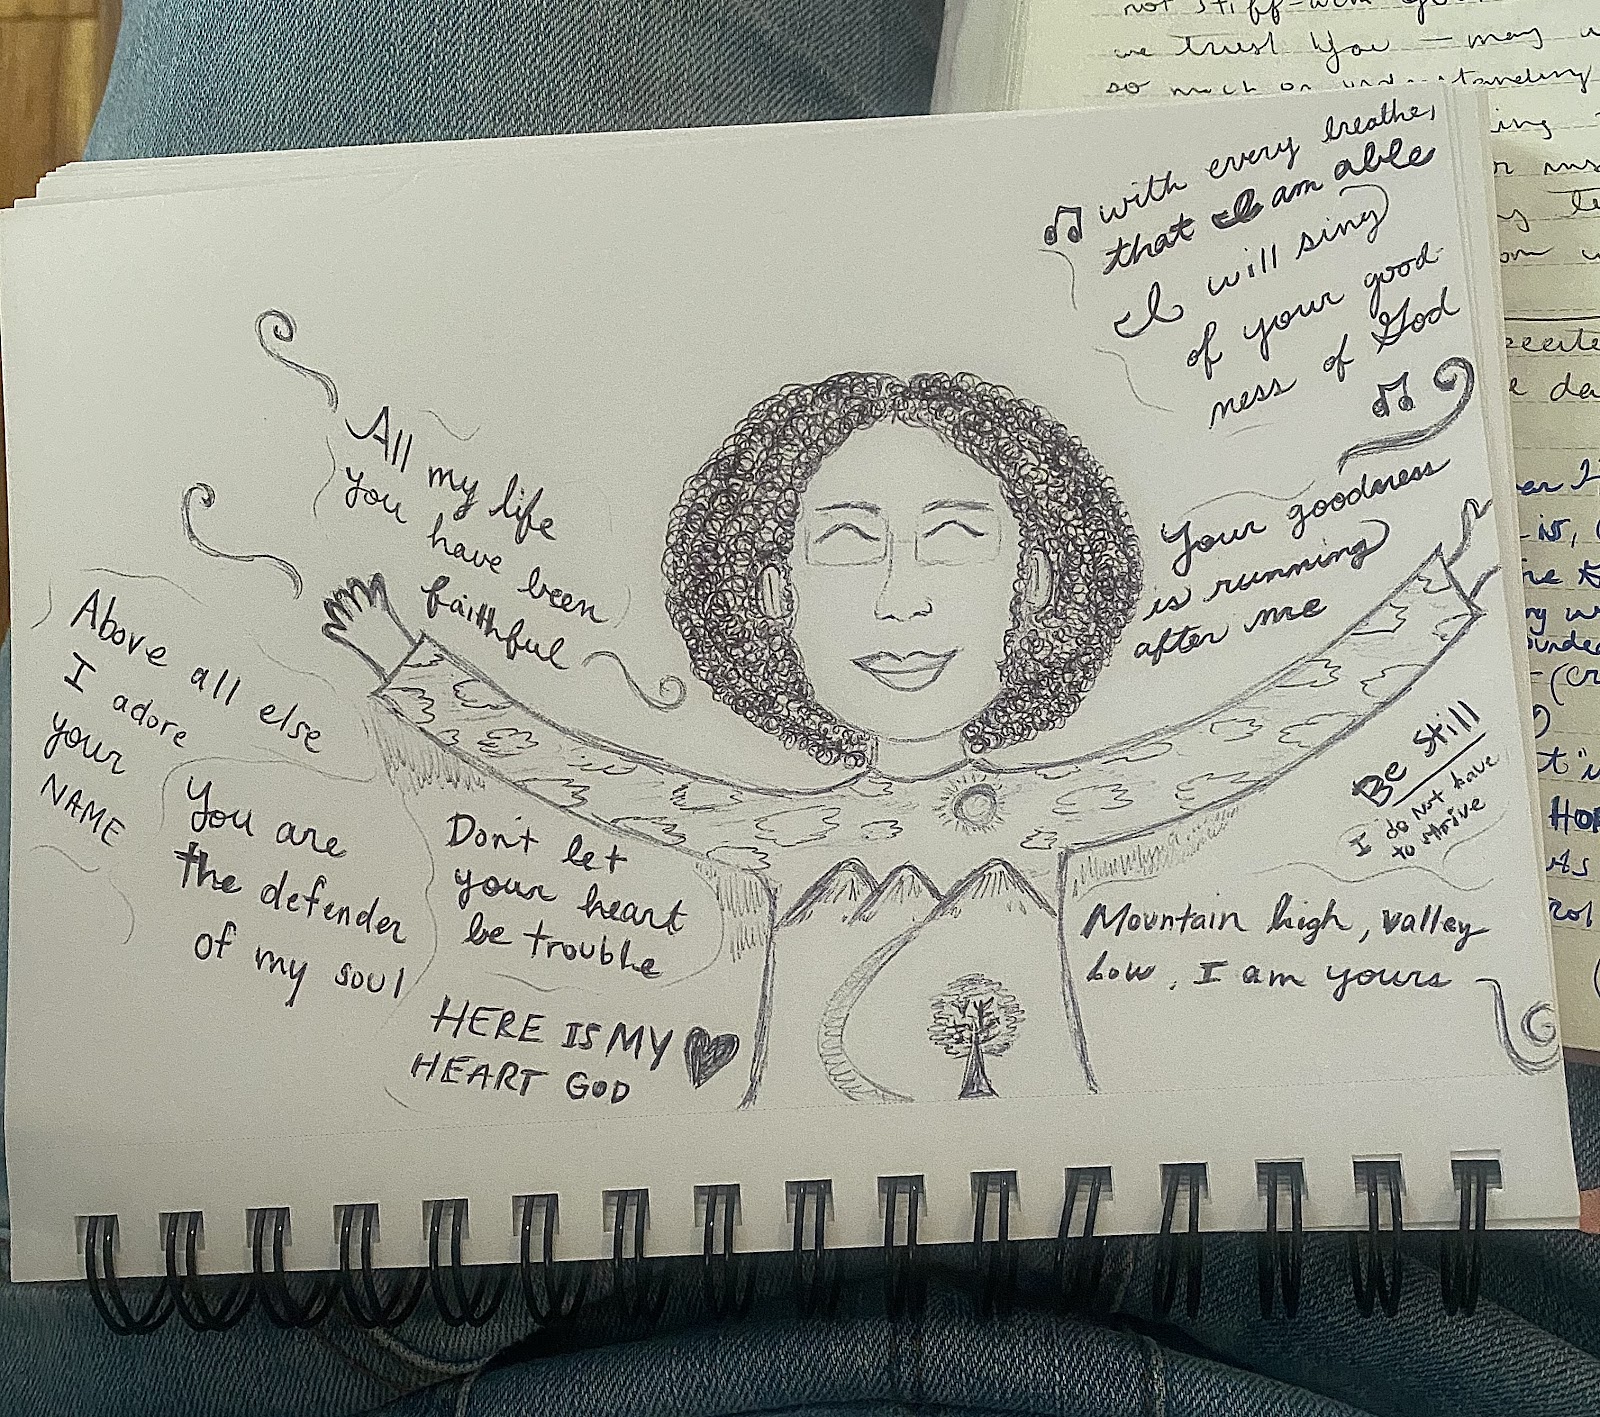 All my life
you have been
faithful
Above all else
I adore
your
NAME
You are
the defender
of my soul
Don't let
your heart
be trouble
HERE IS MY
HEART GOD
with every breathe,
that I am able
I will sing
of your good
ness of God
Your goodness
is running
after me
Be Still
I do Not have
to strive
Mountain high, valley
Low, I am yours
we trust You — may
so much on